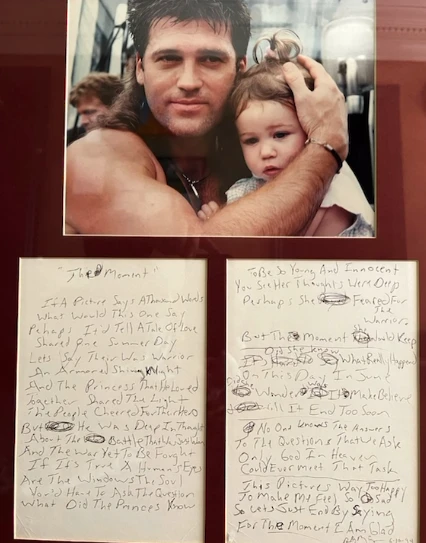 "The Moment"
If A Picture Says A Thousand Words
What Would This One Say
Pehaps It'd Tell A Tale Of Love
Shared One Summer Day
Lets Say Their Was Warrior
An Armored Shining Knight
And The Princess That He Loved
Together Shared The Light
The People Cheered For Their Hero
But He Was Deep In Thought
About The Battle That
And The War Yet To Be Fought
If It's True A Human's Eyes
Are The Windows The Soul
You'd Have To Ask The Question
What Did The Princes Know
To Be So Young And Innocent
You See Her Thoughts Were Deep
Perhaps She Feared For
The
Warrior
But The Moment Would Keep
What Really Happened
On This Day In June
Wonder It Make Believe
Will It End Too Soon
No One Knows The Answers
To The Questions That We Ask
Only God In Heaven
Could Ever Meet That Task
This Pictures Way Too Happy
To Make Me Feel So Sad
So Lets Just End By Saying
For The Moment I Am Glad